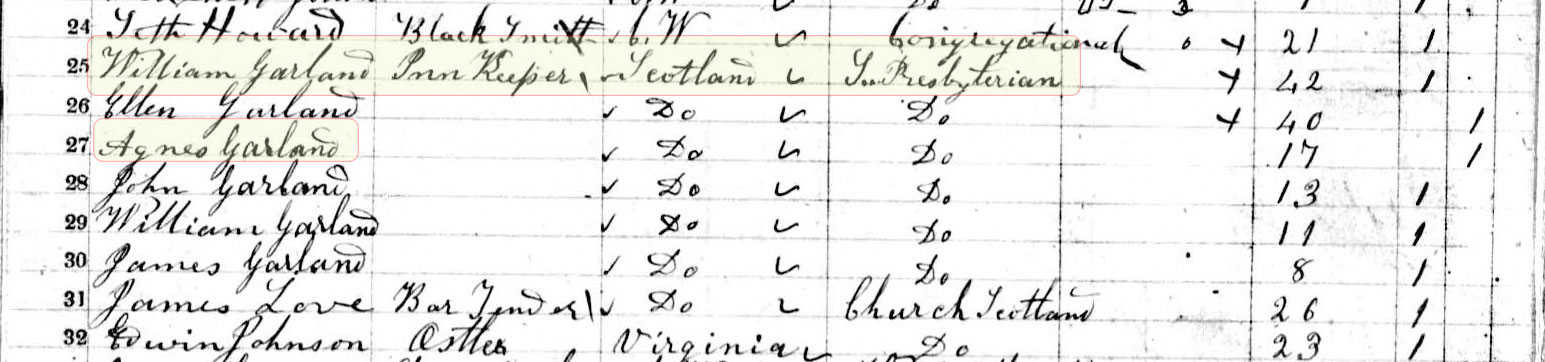 24 Seth Howard Black Smith C. W Congregational 21 1
25 William Garland Inn Keeper Scotland Presbyterian 42 1
26 Ellen Garland Do Do 40 1
27 Agnes Garland Do Do 17 1
28 John Garland Do Do 13 1
29 William Garland Do Do 11 1
30 James Garland Do Do 8 1
31 James Love Bar Tender Do Church Scotland 26 1
32 Edwin Johnson Ostler Virginia Do 23 1